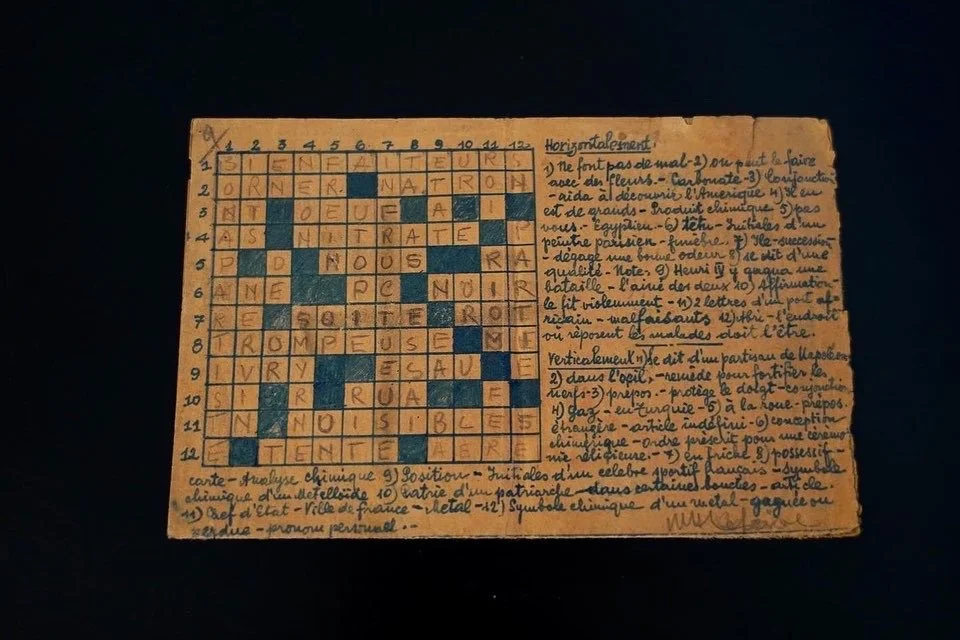 9
1 2 3 4 5 6 7 8 9 10 11 12
1 BIENFAITEURS
2 ORNER NATRON
3 NI OEUF A I
4 AS NITRATE P
5 P D NOUS RA
6 ANE PC NOIR
7 RE SOITE ROT
8 TROMPEUSE MI
9 IVRY ESAU E
10 SI R RUA F
11 TN NUISIBLES
12 E TENTE AERE
Horizontalement:
1) Ne font pas de mal - 2) on peut le faire
avec des fleurs. - Carbonate - 3) Conjonction
- aida à découvrir l'Amérique 4) Il en
est de grands - Produit chimique 5) pas
vous. - Egyptien - 6) têtu - Initiales d'un
peintre parisien - funèbre. 7) Ile - succession
- dégage une bonne odeur 8) se dit d'une
qualité - Note. 9) Henri IV y gagna une
bataille - l'ainé des deux 10) Affirmation -
le fit violemment - 11) 2 lettres d'un port af-
ricain - malfaisants 12) Abri - l'endroit
où reposent les malades doit l'être.
Verticalement 1) se dit d'un partisan de Napoléon
2) dans l'oeil. - remède pour fortifier les
nerfs - 3) prépos. - protège le doigt - conjonction
4) gaz - en Turquie - 5) à la roue - prépos.
étrangère - article indéfini - 6) conception
chimérique - ordre prescrit pour une cérémo-
nie réligieuse. - 7) en friche 8) possessif -
carte - Analyse chimique 9) Position - Initiales d'un célebre sportif français - symbole
chimique d'un Metelloïde 10) Patrie d'un patriarche - dans certaines bouches - article.
11) Chef d'Etat - Ville de France - Metal - 12) Symbole chimique d'un metal - gagnée ou
perdue - pronom personnel. -